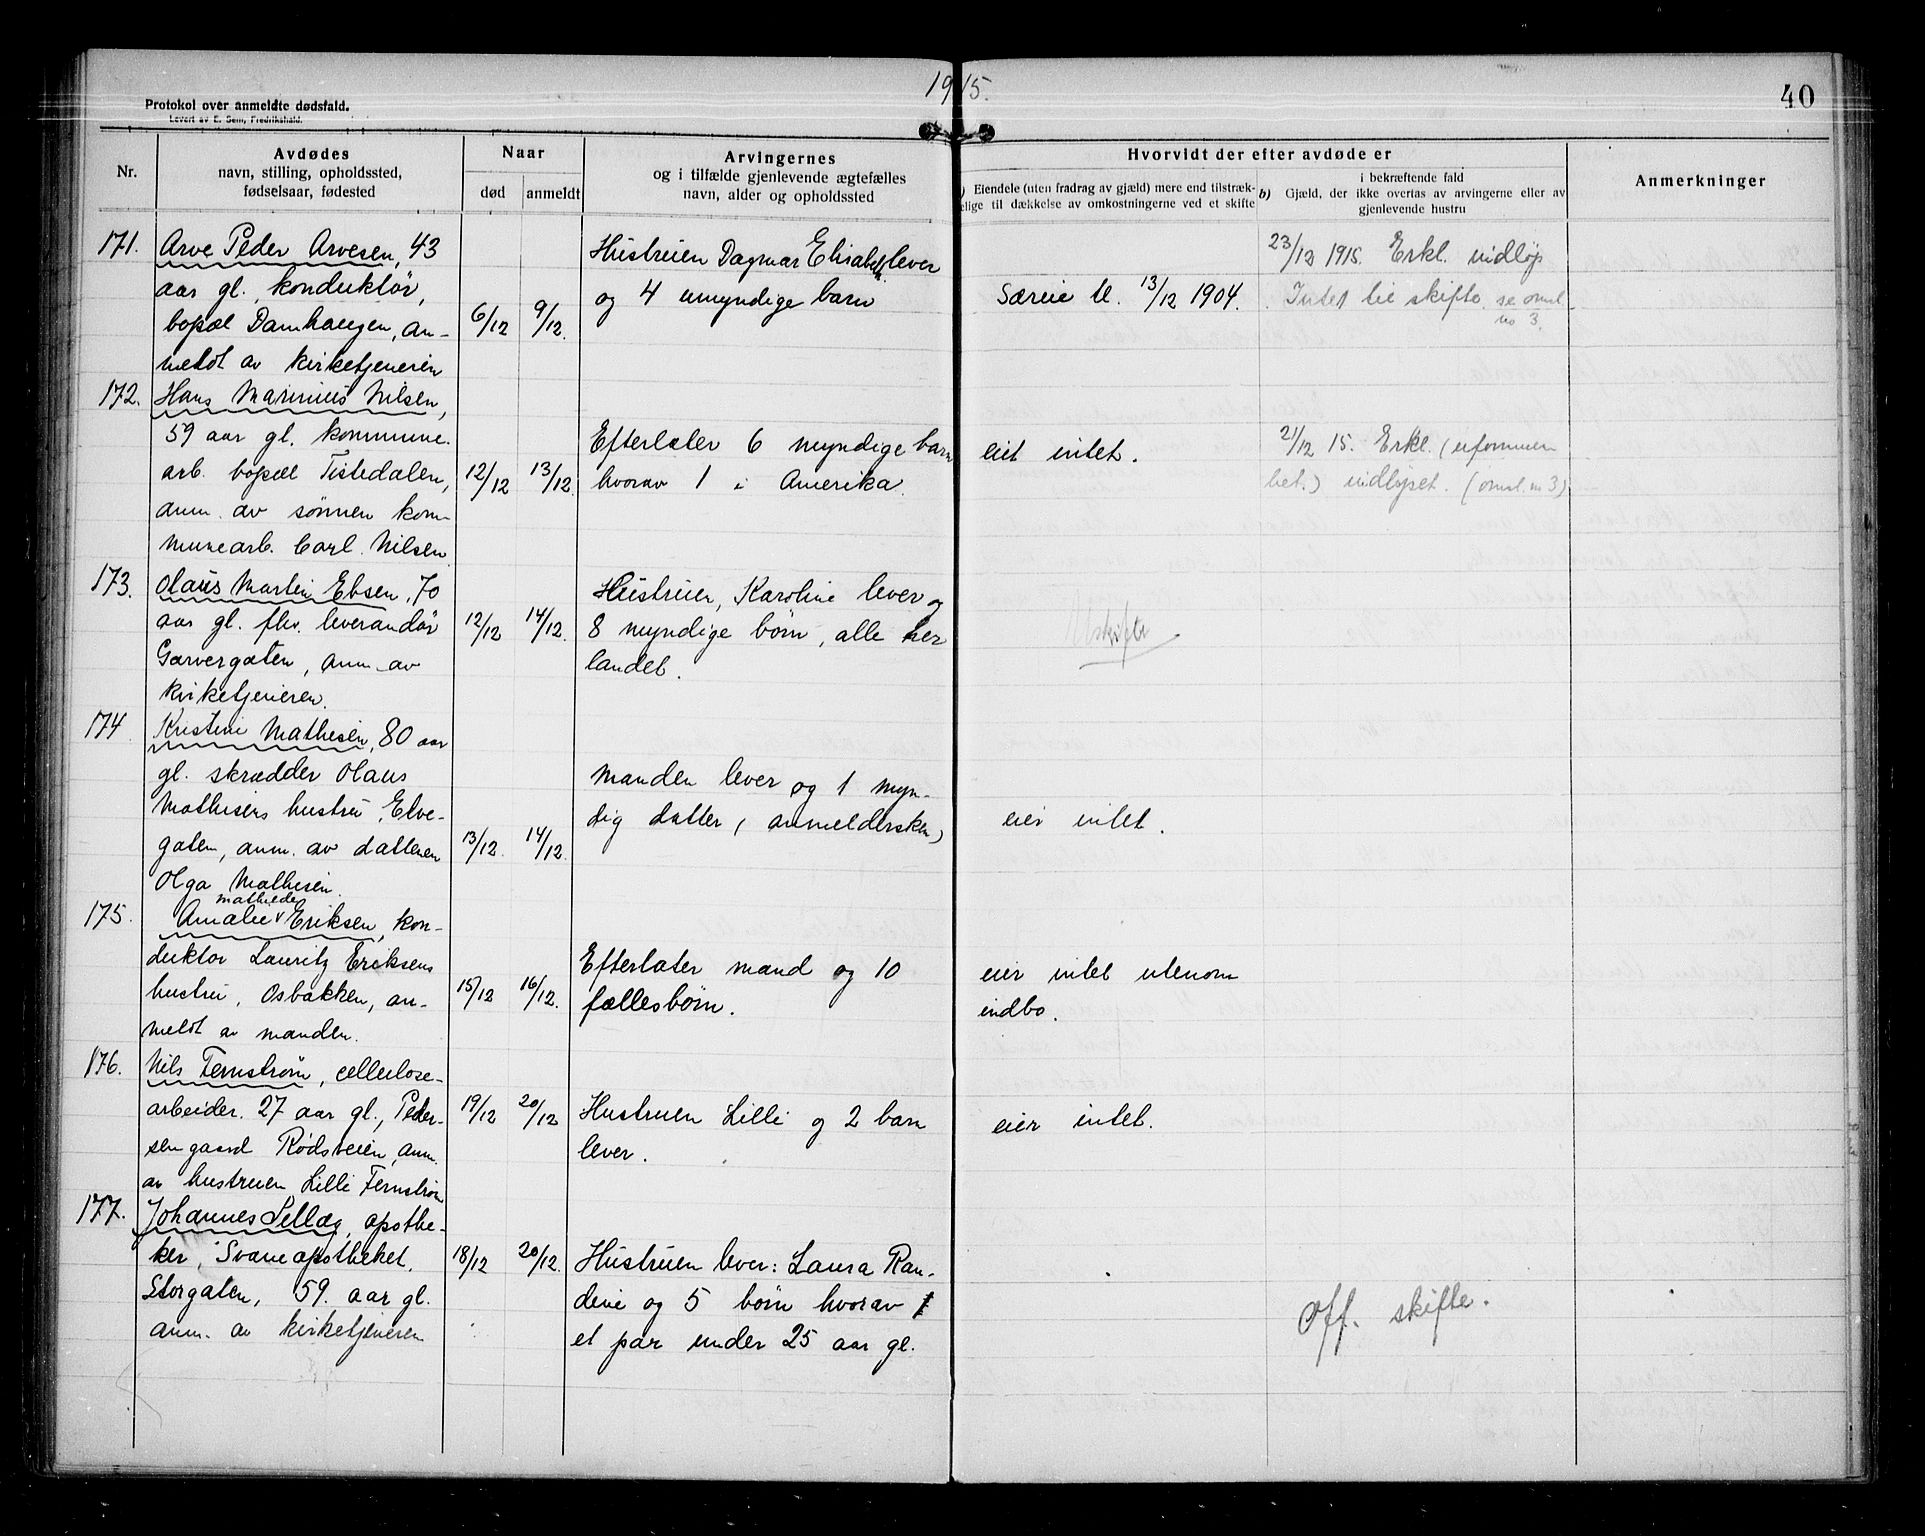 1915.
40
Protokol over anmeldte dødsfald.
Levert av E. Sem, Fredrikshald.
Nr.
Avdødes
navn, stilling, opholdssted,
fødselsaar, fødested
Naar
død
anmeldt
Arvingernes
og i tilfælde gjenlevende ægtefælles
navn, alder og opholdssted
Hvorvidt der efter avdøde er
) Eiendele (uten fradrag av gjæld) mere end tilstræk-
elige til dækkelse av omkostningerne ved et skifte
b)
i bekræftende fald
Gjæld, der ikke overtas av arvingerne eller av
gjenlevende hustru
Anmerkninger
171.
Arve Peder Arvesen, 43
aar gl., konduktør,
bopæl Damhaugen, an-
meldt av kirketjeneren
6/12
9/12.
Hustruen Dagmar Elisabeth lever
og 4 umyndige barn
Særeie tl. 13/12 1904.
23/12 1915. Erkl. indløp
Intet til skifte. se omsl.
no 3.
172.
Hans Marinius Nilsen,
59 aar gl. kommune-
arb. bopæl Tistedalen,
anm. av sønnen kom-
munearb. Carl Nilsen
12/12
13/12.
Efterlater 6 myndige barn
hvorav 1 i Amerika.
eiet intet.
21/12 15. Erkl. (uformuen
het.) indlyset. (omsl. no 3)
173.
Olaus Martin Ebsen, 70
aar gl. fhv. leverandør
Garvergaten, anm. av
kirketjeneren.
12/12
14/12.
Hustruen, Karoline lever og
8 myndige børn, alle her
landet.
Uskifte
174
Kristine Mathisen, 80 aar
gl. skrædder Olaus
Mathisens hustru, Elve-
gaten, anm. av datteren
Olga Mathisen.
13/12.
14/12.
Manden lever og 1 myn-
dig datter (anmeldersken)
eier intet.
175.
mathilde
Amalie v Eriksen, kon-
duktør Lauritz Eriksens
hustru, Osbakken, an-
meldt av manden.
15/12
16/12.
Efterlater mand og 10
fællesbørn.
eier intet utenom
indbo.
176.
Nils Fernstrøm, cellulose-
arbeider. 27 aar gl., Peder-
sengaard Rødsveien, anm.
av hustruen Lilli Fernstrøm
19/12
20/12
Hustruen Lilli og 2 barn
lever.
eier intet.
177.
Johannes Sellæg, apothe-
ker, Svaneapotheket.
Storgaten, 59 aar gl.
anm. av kirketjeneren
18/12
20/12.
Hustruen lever: Laura Ran-
dine og 5 børn hvorav
et par under 25 aar gl.
Off. skifte.